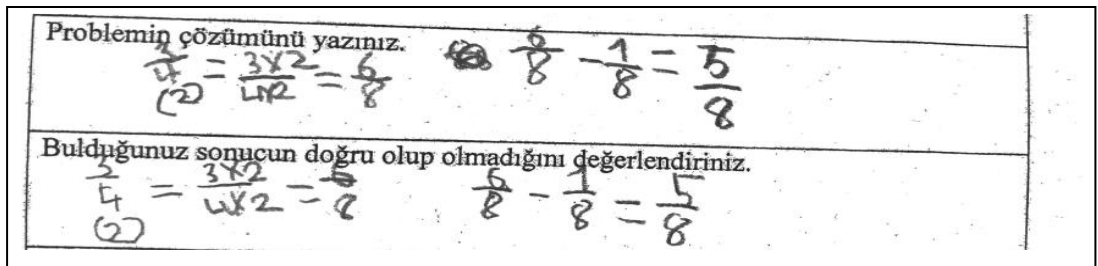 Problemin çözümünü yazınız.
3/4 = 3x2/4x2 = 6/8    6/8 - 1/8 = 5/8
(2)
Bulduğunuz sonucun doğru olup olmadığını değerlendiriniz.
3/4 = 3x2/4x2 = 6/8    6/8 - 1/8 = 5/8
(2)